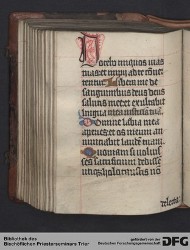 Docebo iniquos uias
tuas et impij ad te conuer
tentur Libera me de
sanguinibus deus deus
salutis mee et exultabit
lingua mea iusticiam tuā
Domine labia mea
aperies et os meum an
nunciabit laudē tuam
Quoniam si voluis
ses sacrificium dedisse
utiqz holocaustis nō
delecta
Bibliothek des
Bischöflichen Priesterseminars Trier
gefördert von der
Deutschen Forschungsgemeinschaft
DFG